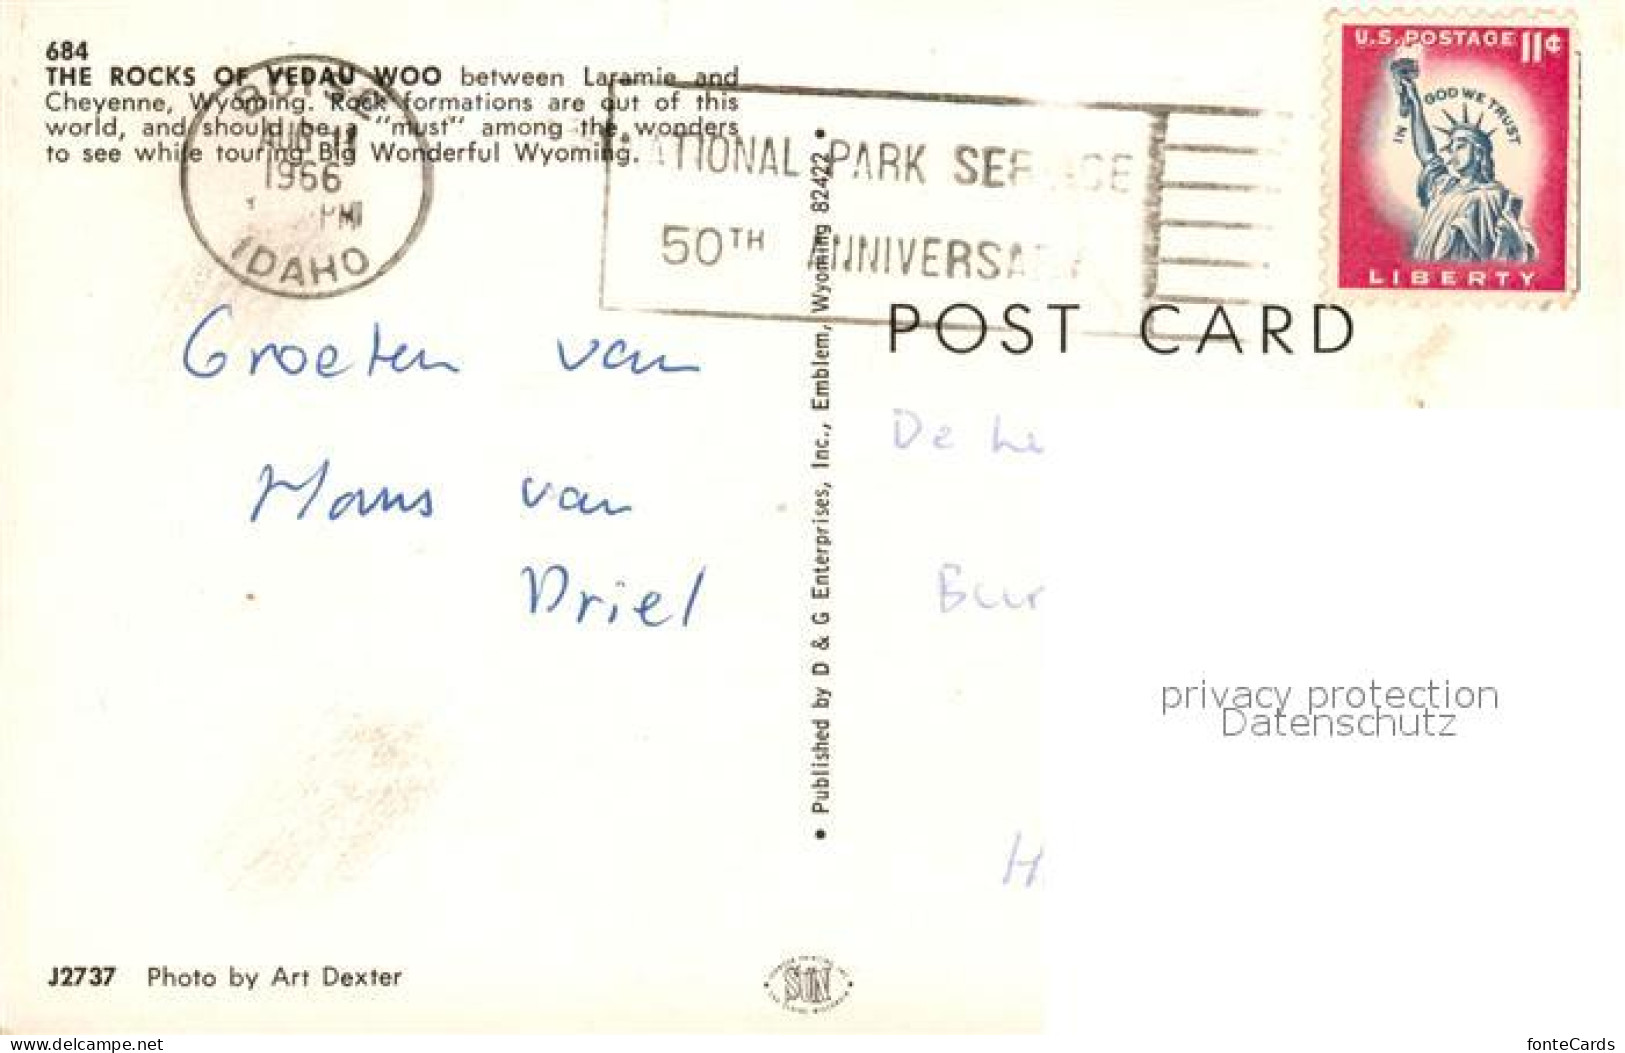 684
THE ROCKS OF VEDAU WOO between Laramie and
Cheyenne, Wyoming. Rock formations are out of this
world, and should be a "must" among the wonders
to see while touring Big Wonderful Wyoming.
BOISE
1966
PM
IDAHO
NATIONAL PARK SERVICE
50TH ANNIVERSARY
U.S. POSTAGE 11¢
IN GOD WE TRUST
LIBERTY
POST CARD
Groeten van
Hans van
Driel
• Published by D & G Enterprises, Inc., Emblem, Wyoming 82422 •
De
privacy protection
Datenschutz
J2737 Photo by Art Dexter
SUN
www.delcampe.net
fonteCards